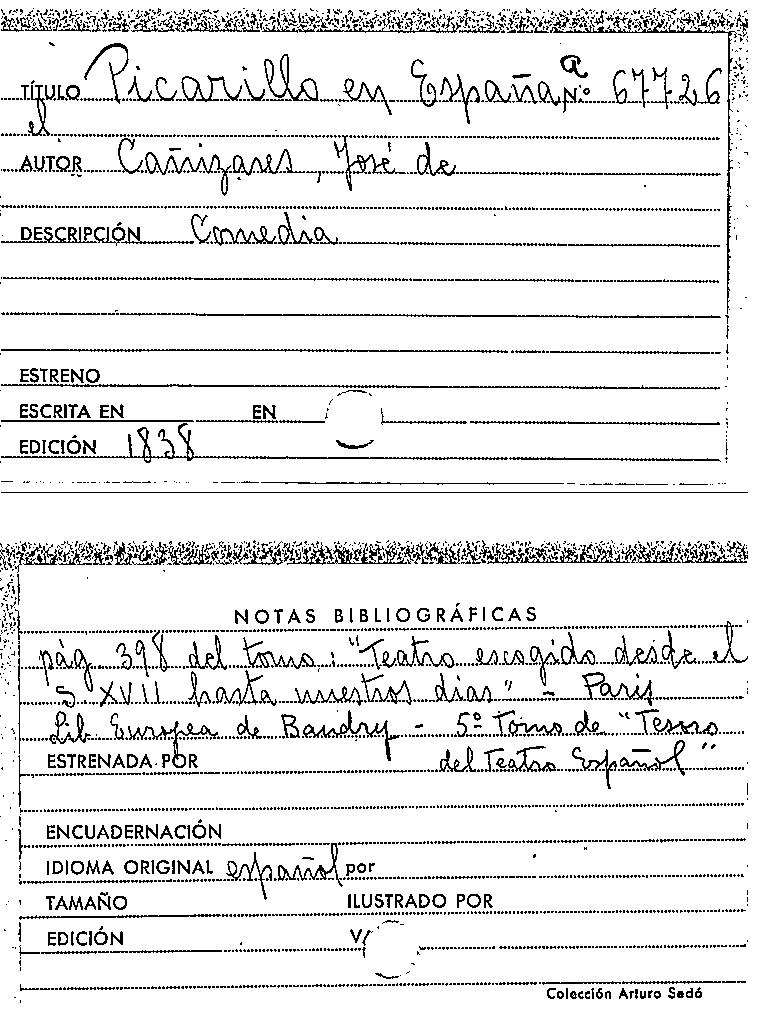 TÍTULO Picarillo en España, Nº a 67726
el
AUTOR Cañizares, José de
DESCRIPCIÓN Comedia
ESTRENO
ESCRITA EN EN
EDICIÓN 1838
NOTAS BIBLIOGRÁFICAS
pág. 398 del tomo: "Teatro escogido desde el
S. XVII hasta nuestros dias" - Paris
Lib Europea de Baudry - 5º Tomo de "Tesoro
del Teatro Español"
ESTRENADA POR
ENCUADERNACIÓN
IDIOMA ORIGINAL español por
TAMAÑO ILUSTRADO POR
EDICIÓN V/
Colección Arturo Sedó